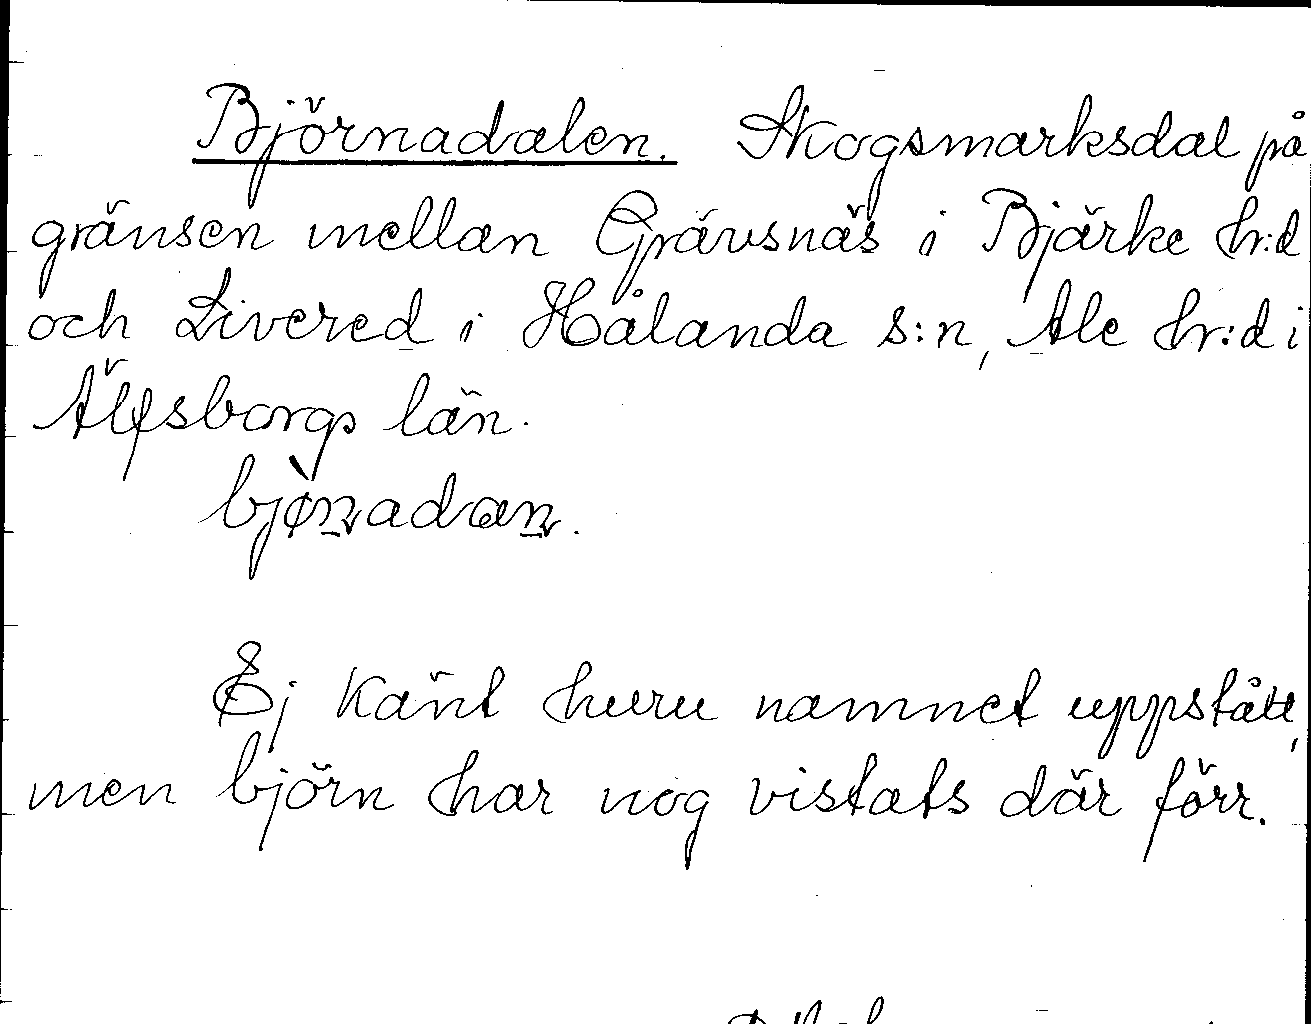 Björnadalen. Skogsmarksdal på
gränsen mellan Grävsnäs i Bjärke hr:d
och Livered i Hålanda s:n, Ale hr:d i
Älfsborgs län.
Ej känt huru namnet uppstått,
men björn har nog vistats där förr.